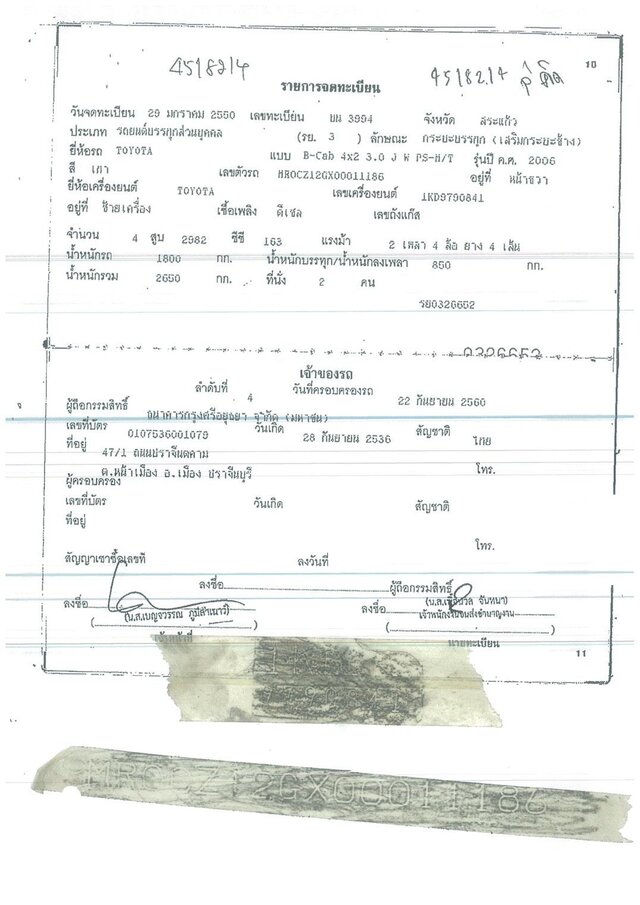 45182/4
45182/4
10
รายการจดทะเบียน
วันจดทะเบียน 29 มกราคม 2550 เลขทะเบียน บน 3994 จังหวัด สระแก้ว
ประเภท รถยนต์บรรทุกส่วนบุคคล (รย. 3 ) ลักษณะ กระบะบรรทุก (เสริมกระบะข้าง)
ยี่ห้อรถ TOYOTA แบบ B-Cab 4x2 3.0 J W PS-M/T รุ่นปี ค.ศ. 2006
สี เทา เลขตัวรถ MROCZ12GX00011186 อยู่ที่ หน้าขวา
ยี่ห้อเครื่องยนต์ TOYOTA เลขเครื่องยนต์ 1KD9790841
อยู่ที่ ซ้ายเครื่อง เชื้อเพลิง ดีเซล เลขถังแก๊ส
จำนวน 4 สูบ 2982 ซีซี 163 แรงม้า 2 เพลา 4 ล้อ ยาง 4 เส้น
น้ำหนักรถ 1800 กก. น้ำหนักบรรทุก/น้ำหนักลงเพลา 850 กก.
น้ำหนักรวม 2650 กก. ที่นั่ง 2 คน
รย0326652
0326652
เจ้าของรถ
ลำดับที่ 4 วันที่ครอบครองรถ 22 กันยายน 2560
ผู้ถือกรรมสิทธิ์ ธนาคารกรุงศรีอยุธยา จำกัด (มหาชน)
เลขที่บัตร 0107536001079 วันเกิด 28 กันยายน 2536 สัญชาติ ไทย
ที่อยู่ 47/1 ถนนปราจีนตคาม
ต.หน้าเมือง อ.เมือง ปราจีนบุรี โทร.
ผู้ครอบครอง
เลขที่บัตร วันเกิด สัญชาติ
ที่อยู่
โทร.
สัญญาเช่าซื้อเลขที่ ลงวันที่
ลงชื่อ ผู้ถือกรรมสิทธิ์
ลงชื่อ ลงชื่อ
(น.ส.เบญจวรรณ ภูมิลำเนาว์) เจ้าพนักงานขนส่งชำนาญงาน
นายทะเบียน
11
MROCZ12GX00011186